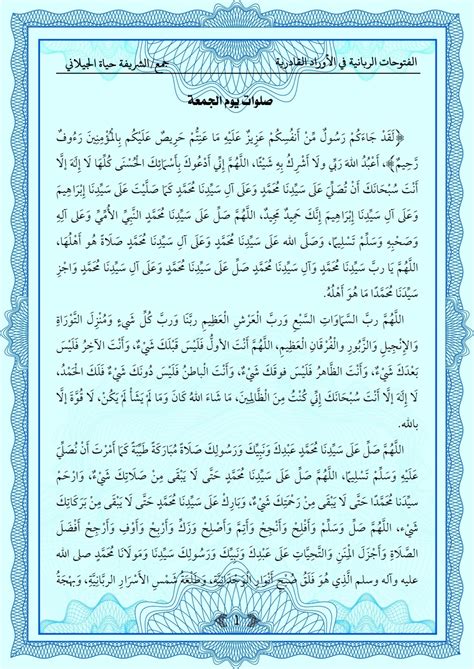 الفتوحات الربانية في الأوراد القادرية جمع/الشريفة حياة الجيلاني
صلوات يوم الجمعة
﴿لَقَدْ جَاءَكُمْ رَسُولٌ مِّنْ أَنفُسِكُمْ عَزِيزٌ عَلَيْهِ مَا عَنِتُّمْ حَرِيصٌ عَلَيْكُم بِالْمُؤْمِنِينَ رَءُوفٌ
رَّحِيمٌ﴾، أَعْبُدُ اللهَ رَبِّي وَلَا أُشْرِكُ بِهِ شَيْئًا، اللَّهُمَّ إِنِّي أَدْعُوكَ بِأَسْمَائِكَ الْحُسْنَى كُلِّهَا لَا إِلَهَ إِلَّا
أَنْتَ سُبْحَانَكَ أَنْ تُصَلِّيَ عَلَى سَيِّدِنَا مُحَمَّدٍ وَعَلَى آلِ سَيِّدِنَا مُحَمَّدٍ كَمَا صَلَّيْتَ عَلَى سَيِّدِنَا إِبْرَاهِيمَ
وَعَلَى آلِ سَيِّدِنَا إِبْرَاهِيمَ إِنَّكَ حَمِيدٌ مَجِيدٌ، اللَّهُمَّ صَلِّ عَلَى سَيِّدِنَا مُحَمَّدٍ النَّبِيِّ الْأُمِّيِّ وَعَلَى آلِهِ
وَصَحْبِهِ وَسَلِّمْ تَسْلِيمًا، وَصَلَّى الله عَلَى سَيِّدِنَا مُحَمَّدٍ وَعَلَى آلِ سَيِّدِنَا مُحَمَّدٍ صَلَاةً هُوَ أَهْلُهَا،
اللَّهُمَّ يَا رَبَّ سَيِّدِنَا مُحَمَّدٍ وَآلِ سَيِّدِنَا مُحَمَّدٍ صَلِّ عَلَى سَيِّدِنَا مُحَمَّدٍ وَعَلَى آلِ سَيِّدِنَا مُحَمَّدٍ وَاجْزِ
سَيِّدَنَا مُحَمَّدًا مَا هُوَ أَهْلُهُ.
اللَّهُمَّ رَبَّ السَّمَاوَاتِ السَّبْعِ وَرَبَّ الْعَرْشِ الْعَظِيمِ رَبَّنَا وَرَبَّ كُلِّ شَيْءٍ وَمُنْزِلَ التَّوْرَاةِ
وَالْإِنْجِيلِ وَالزَّبُورِ وَالْفُرْقَانِ الْعَظِيمِ، اللَّهُمَّ أَنْتَ الْأَوَّلُ فَلَيْسَ قَبْلَكَ شَيْءٌ، وَأَنْتَ الْآخِرُ فَلَيْسَ
بَعْدَكَ شَيْءٌ، وَأَنْتَ الظَّاهِرُ فَلَيْسَ فَوْقَكَ شَيْءٌ، وَأَنْتَ الْبَاطِنُ فَلَيْسَ دُونَكَ شَيْءٌ فَلَكَ الْحَمْدُ،
لَا إِلَهَ إِلَّا أَنْتَ سُبْحَانَكَ إِنِّي كُنْتُ مِنَ الظَّالِمِينَ، مَا شَاءَ اللهُ كَانَ وَمَا لَمْ يَشَأْ لَمْ يَكُنْ، لَا قُوَّةَ إِلَّا
بالله.
اللَّهُمَّ صَلِّ عَلَى سَيِّدِنَا مُحَمَّدٍ عَبْدِكَ وَنَبِيِّكَ وَرَسُولِكَ صَلَاةً مُبَارَكَةً طَيِّبَةً كَمَا أَمَرْتَ أَنْ نُصَلِّيَ
عَلَيْهِ وَسَلِّمْ تَسْلِيمًا، اللَّهُمَّ صَلِّ عَلَى سَيِّدِنَا مُحَمَّدٍ حَتَّى لَا يَبْقَى مِنْ صَلَاتِكَ شَيْءٌ، وَارْحَمْ
سَيِّدَنا مُحَمَّدًا حَتَّى لَا يَبْقَى مِنْ رَحْمَتِكَ شَيْءٌ، وَبَارِكْ عَلَى سَيِّدِنَا مُحَمَّدٍ حَتَّى لَا يَبْقَى مِنْ بَرَكَاتِكَ
شَيْء، اللَّهُمَّ صَلِّ وَسَلِّمْ وَأَفْلِحْ وَأَنْجِحْ وَأَتِمَّ وَأَصْلِحْ وَزَكِّ وَأَرْبِحْ وَأَوْفِ وَأَرْجِحْ أَفْضَلَ
الصَّلَاةِ وَأَجْزَلَ الْمِنَنِ وَالتَّحِيَّاتِ عَلَى عَبْدِكَ وَنَبِيِّكَ وَرَسُولِكَ سَيِّدِنَا وَمَوْلَانَا مُحَمَّدٍ صلى الله
عليه وآله وسلم الَّذِي هُوَ فَلَقُ صُبْحِ أَنْوَارِ الْوَحْدَانِيَّةِ، وَطَلْعَةُ شَمْسِ الْأَسْرَارِ الرَّبَّانِيَّةِ، وَبَهْجَةُ
1